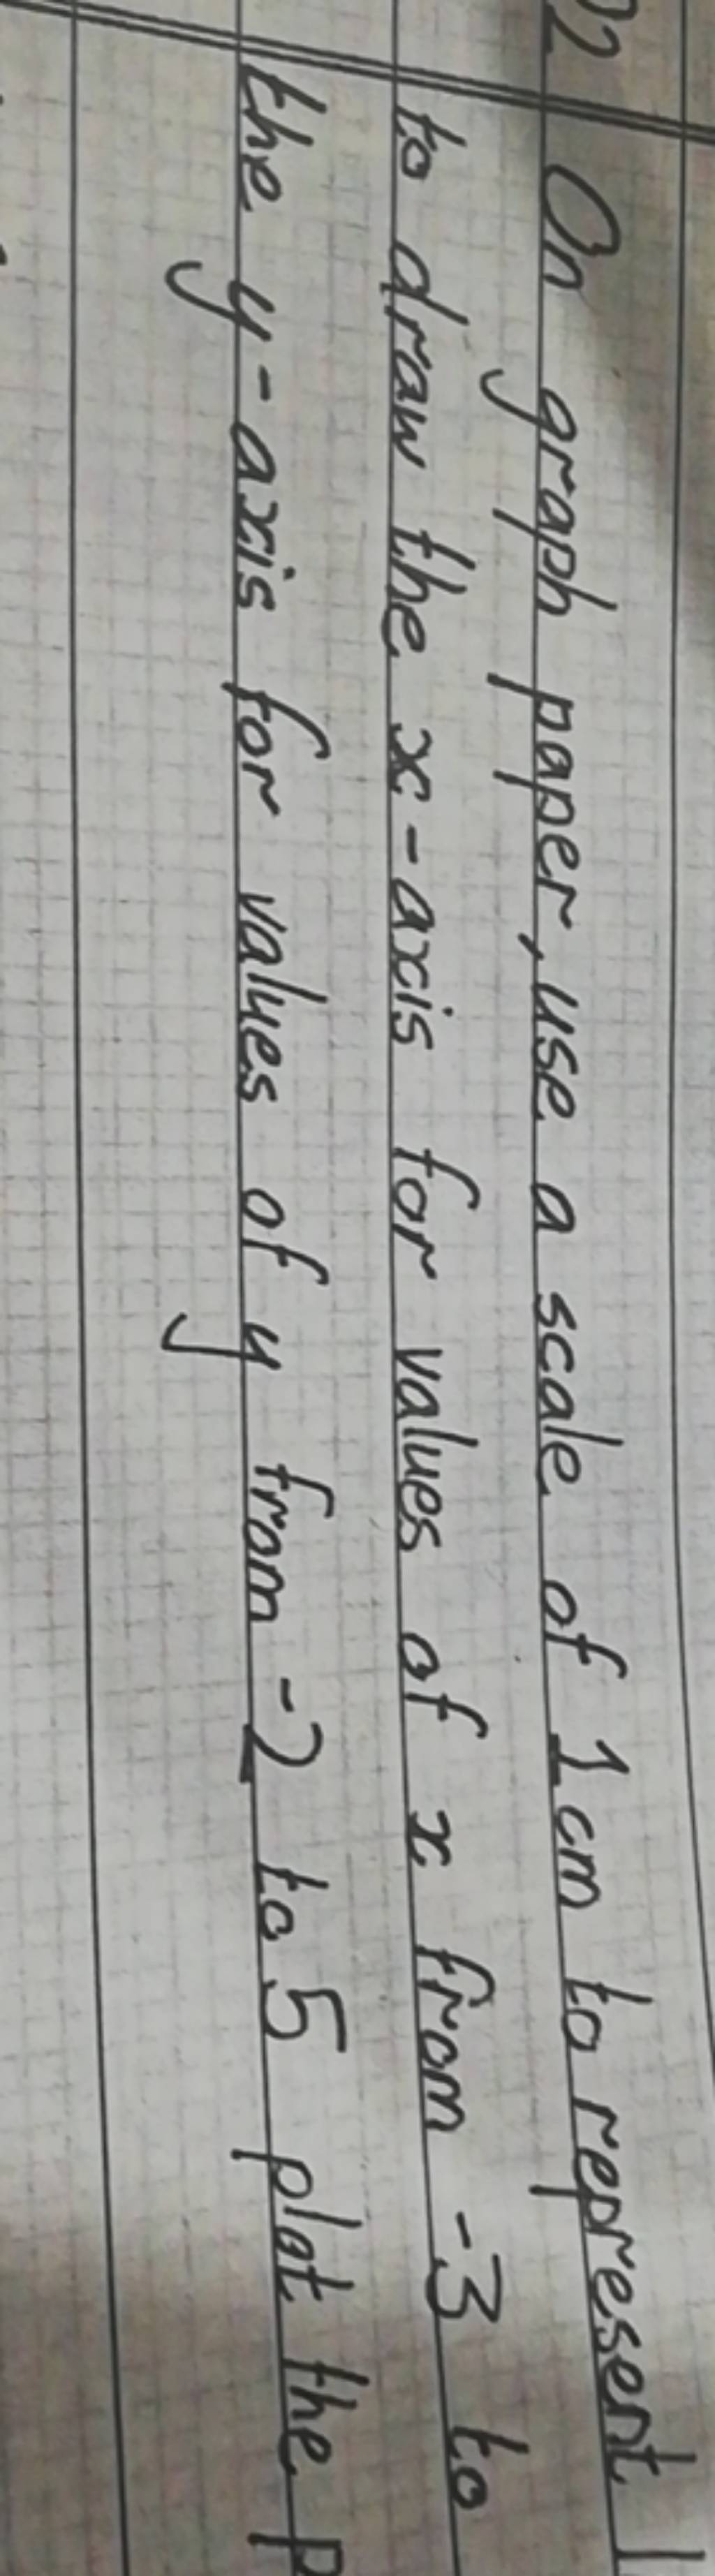 22 On graph paper, use a scale of 1cm to represent 1
to draw the x-axis for values of x from -3 to
the y-axis for values of y from -2 to 5 plot the p